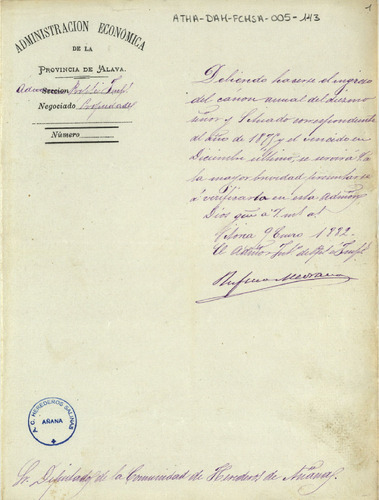 ATHA-DAH-FCHSA-005-143
1
ADMINISTRACION ECONÓMICA
DE LA
PROVINCIA DE ALAVA.
Seccion
Negociado Propiedades
Número
Debiendo hacerse el ingreso
del cánon anual del diezmo
y Situado correspondiente
al año de 1877 y el vencido en
Diciembre último, se servirá V. a
la mayor brevedad presentarse
á verificarlo en esta Admón
Dios gue á V. m. a.
Vitoria 9 Enero 1882.
El
Rufino
A. C. HEREDEROS SALINAS
AÑANA
Sr. Diputado de la Comunidad de Herederos de Añana